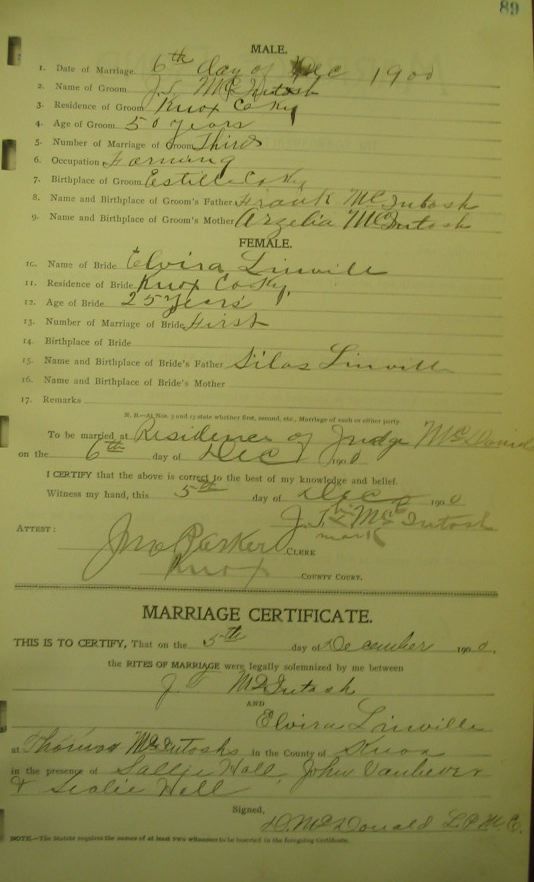 89
MALE.
1. Date of Marriage 6th day of Dec 1900
2. Name of Groom J. T. McIntosh
3. Residence of Groom Knox Co Ky
4. Age of Groom 50 years
5. Number of Marriage of Groom Third
6. Occupation Farming
7. Birthplace of Groom Estill Co Ky
8. Name and Birthplace of Groom's Father Frank McIntosh
9. Name and Birthplace of Groom's Mother Arzelia McIntosh
FEMALE.
10. Name of Bride Elvira Linvill
11. Residence of Bride Knox Co Ky,
12. Age of Bride 25 years
13. Number of Marriage of Bride First
14. Birthplace of Bride
15. Name and Birthplace of Bride's Father Silas Linvill
16. Name and Birthplace of Bride's Mother
17. Remarks
N. B.—At Nos. 5 and 13 state whether first, second, etc., Marriage of each or either party.
To be married at Residence of Judge McDonald
on the 6th day of Dec 1900
I CERTIFY that the above is correct to the best of my knowledge and belief.
Witness my hand, this 5th day of Dec 1900
J. T. his x mark McIntosh
ATTEST: Jno Parker CLERK
Knox COUNTY COURT.
MARRIAGE CERTIFICATE.
THIS IS TO CERTIFY, That on the 5th day of December 1900.
the RITES OF MARRIAGE were legally solemnized by me between
J. T McIntosh
AND
Elvira Linville
at Thomas McIntoshs in the County of Knox
in the presence of Sallie Hall, John Vanbever
& Leslie Hall
Signed,
D. McDonald
NOTE.—The Statute requires the names of at least two witnesses to be inserted in the foregoing Certificate.